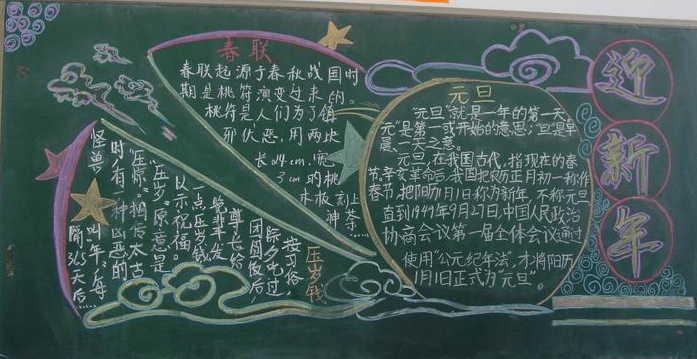 春联
春联起源于春秋战国时
期是桃符演变过来的。
桃符是人们为了镇
邪伏恶,用两块
长24cm,宽
3cm的桃
木板刻上
神荼……
元旦
“元旦”就是一年的第一天。
元”是第一或开始的意思;旦是早
晨、一天之意。
元旦,在我国古代,指现在的春
节,辛亥革命后,我国把农历正月初一称作
春节,把阳历1月1日称为新年,不称元旦
直到1949年9月27日,中国人民政治
协商会议第一届全体会议通过
使用“公元纪年法”,才将阳历
1月1日正式为“元旦”。
迎
新
年
压岁钱
按习俗
除夕吃过
团圆饭后,
尊长给
晚辈发
一点压岁钱
以示祝福。
“压岁”原意是
“压惊”。相传太古
时,有一种凶恶的
怪兽
叫“年”,每
隔365天后……